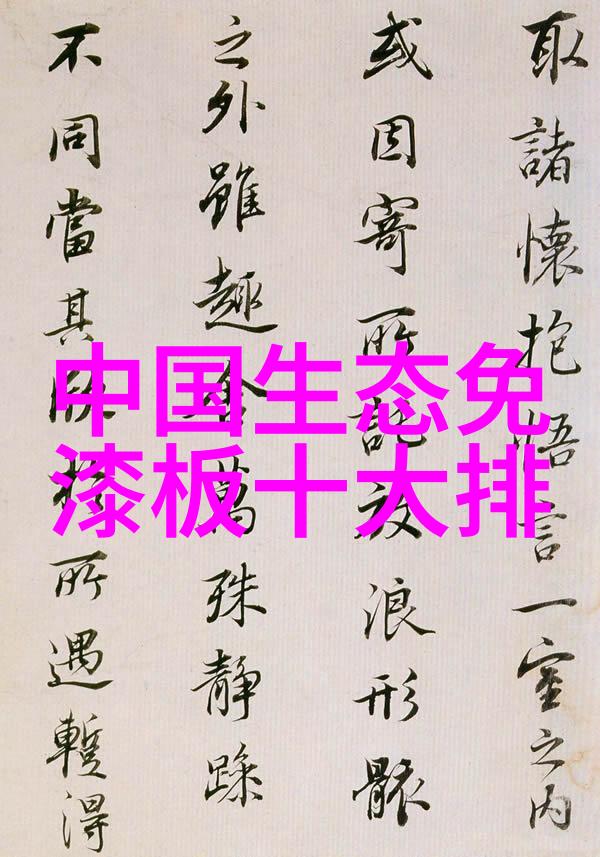 取諸懷抱悟言一室之內
或因寄所託放浪形骸
之外雖趣舍萬殊靜躁
不同當其欣於所遇暫得
中国生态免
漆板十大排